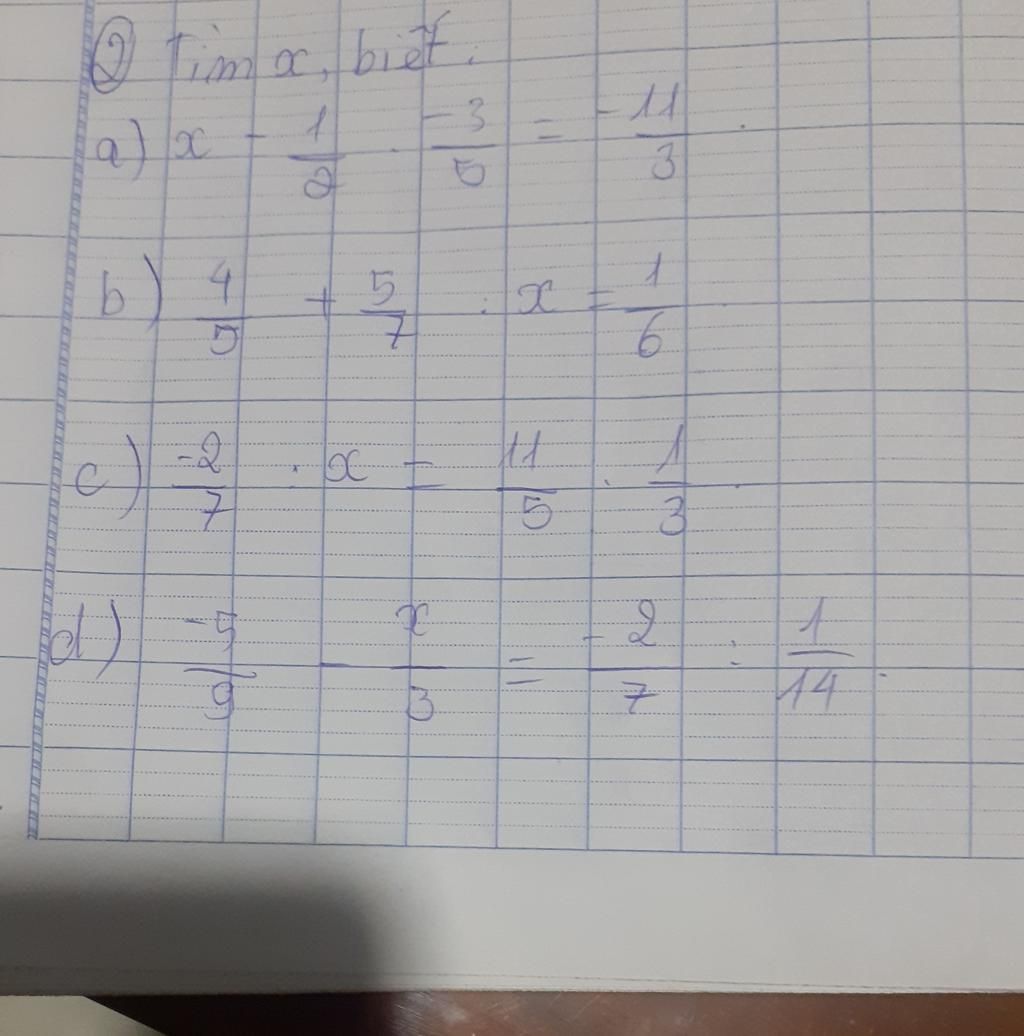 ② Tìm x, biết:
a) x - 1/2 . -3/5 = -11/3.
b) 4/5 + 5/7 : x = 1/6.
c) -2/7 : x = 11/5 . 1/3.
d) -5/9 - x/3 = -2/7 : 1/14.